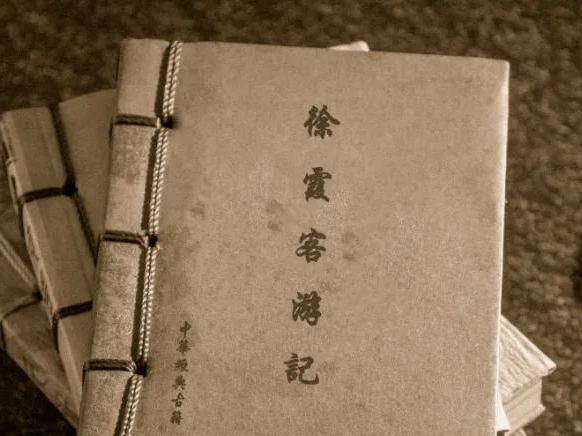 徐霞客游記
中華經典古籍